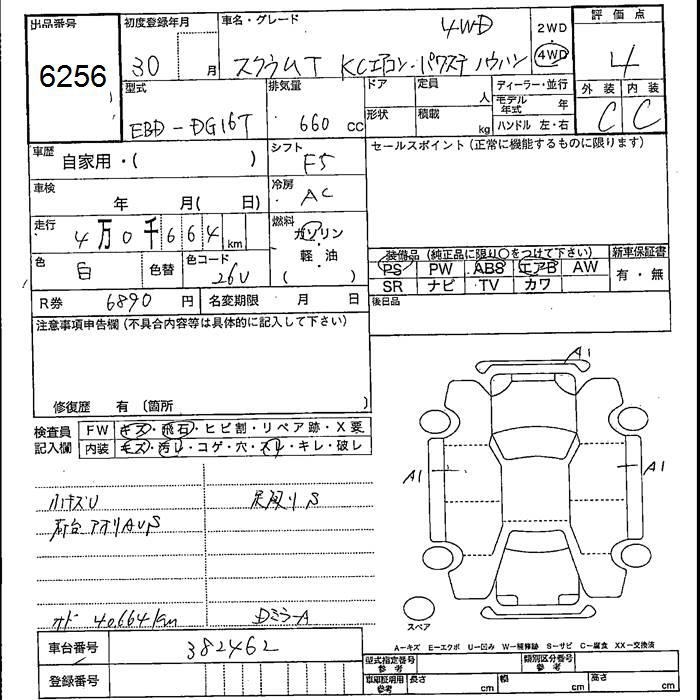 出品番号
6256
初度登録年月
30 月
車名・グレード
4WD
スクラムT KCエアコン・パワステ ノウハン
2WD
・
4WD
評価点
4
外装 内装
C C
型式
EBD-DG16T
排気量
660 cc
ドア
定員 人
形状
積載 kg
ディーラー・並行
モデル年式 年
ハンドル 左・右
車歴 自家用・( )
シフト F5
セールスポイント(正常に機能するものに限ります)
車検 年 月( 日)
冷房 AC
走行 4万0千664 km
燃料 ガソリン
・
軽油
( )
色 白 色替 色コード 26U
装備品 (純正品に限り○をつけて下さい)
PS PW ABS エアB AW
SR ナビ TV カワ
新車保証書
有・無
R券 6890 円 名変期限 月 日
後日品
注意事項申告欄(不具合内容等は具体的に記入して下さい)
修復歴 有 (箇所 )
検査員記入欄
FW キズ・飛石・ヒビ割・リペア跡・X要
内装 キズ・汚レ・コゲ・穴・スレ・キレ・破レ
A1
A1
A1
小キズU
荷台アオリAUS
オド 40664km
Dミラ-A
スペア
車台番号 382462
登録番号
A-キズ E-エクボ U-凹み W-補修跡 S-サビ C-腐食 XX-交換済
型式指定番号 参考
類別区分番号 参考
車庫証明用 参考
長さ cm
幅 cm
高さ cm